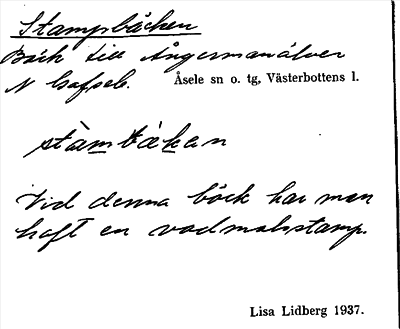 Stampbäcken
Bäck till Ångermanälven
N Gafsele. Åsele sn o. tg, Västerbottens l.
stàmbäkan
Vid denna bäck har man
haft en vadmalsstamp.
Lisa Lidberg 1937.